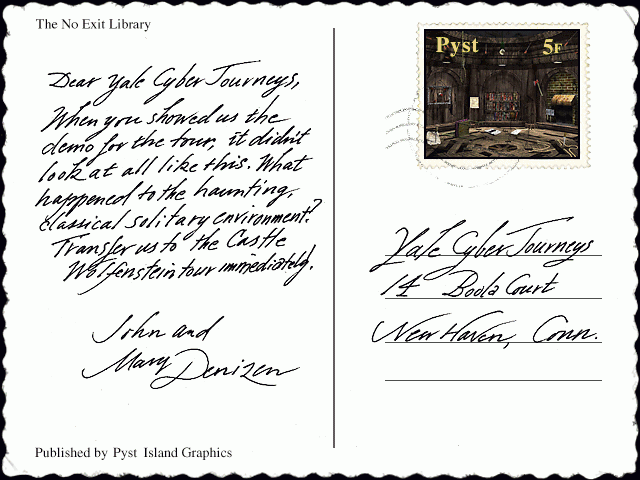 The No Exit Library
Dear Yale Cyber Journeys,
When you showed us the
demo for the tour, it didn't
look at all like this. What
happened to the haunting,
classical solitary environment?
Transfer us to the Castle
Wolfenstein tour immediately.
John and
Mary Denizen
Published by Pyst Island Graphics
Pyst 5F
Yale Cyber Journeys
14 Boola Court
New Haven, Conn.